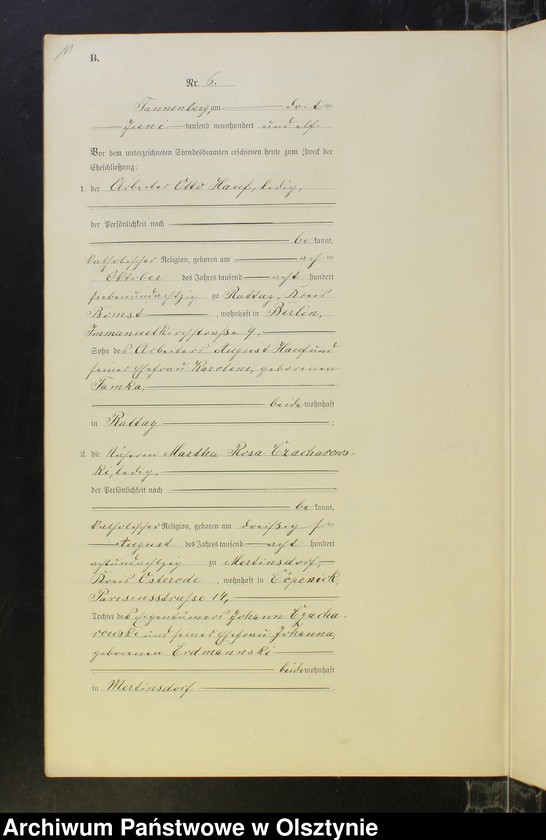 B.
Nr. 6.
Tannenberg, am dritten
Juni tausend neunhundert und elf.
Vor dem unterzeichneten Standesbeamten erschienen heute zum Zweck der
Eheschließung:
1. der Arbeiter Otto Hauf, ledig,
der Persönlichkeit nach
be kannt,
katholischer Religion, geboren am achten
Oktober des Jahres tausend acht hundert
siebenundachtzig zu Rattay, Kreis
Bomst, wohnhaft in Berlin,
Immanuelkirchstraße 9,
Sohn des Arbeiters August Hauf und
seiner Ehefrau Karoline, geborenen
Tamka,
beide wohnhaft
in Rattay ;
2. die Näherin Martha Rosa Czacharows-
ki, ledig,
der Persönlichkeit nach
be kannt,
katholischer Religion, geboren am dreißigsten
August des Jahres tausend acht hundert
achtundachtzig zu Mertinsdorf,
Kreis Osterode, wohnhaft in Cöpenick,
Parisiusstraße 14,
Tochter des Eigentümers Johann Czacha-
rowski und seiner Ehefrau Johanna,
geborenen Erdmannski
beide wohnhaft
in Mertinsdorf
Archiwum Państwowe w Olsztynie